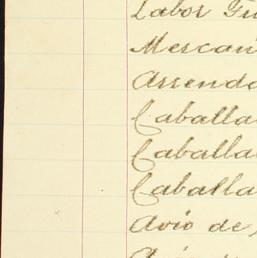 Labor Gu
Mercan
Arrenda
Caballa
Caballa
Caballa
Avio de